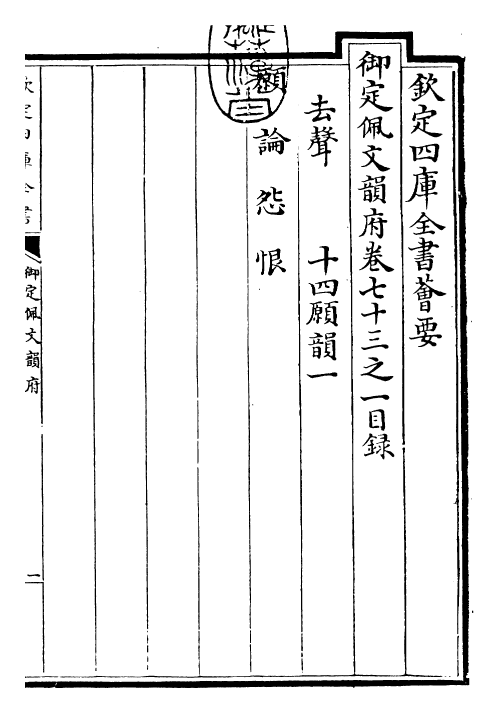 欽定四庫全書薈要
御定佩文韻府卷七十三之一目録
去聲 十四願韻一
願 論 怨 恨
欽定四庫全書
御定佩文韻府
一